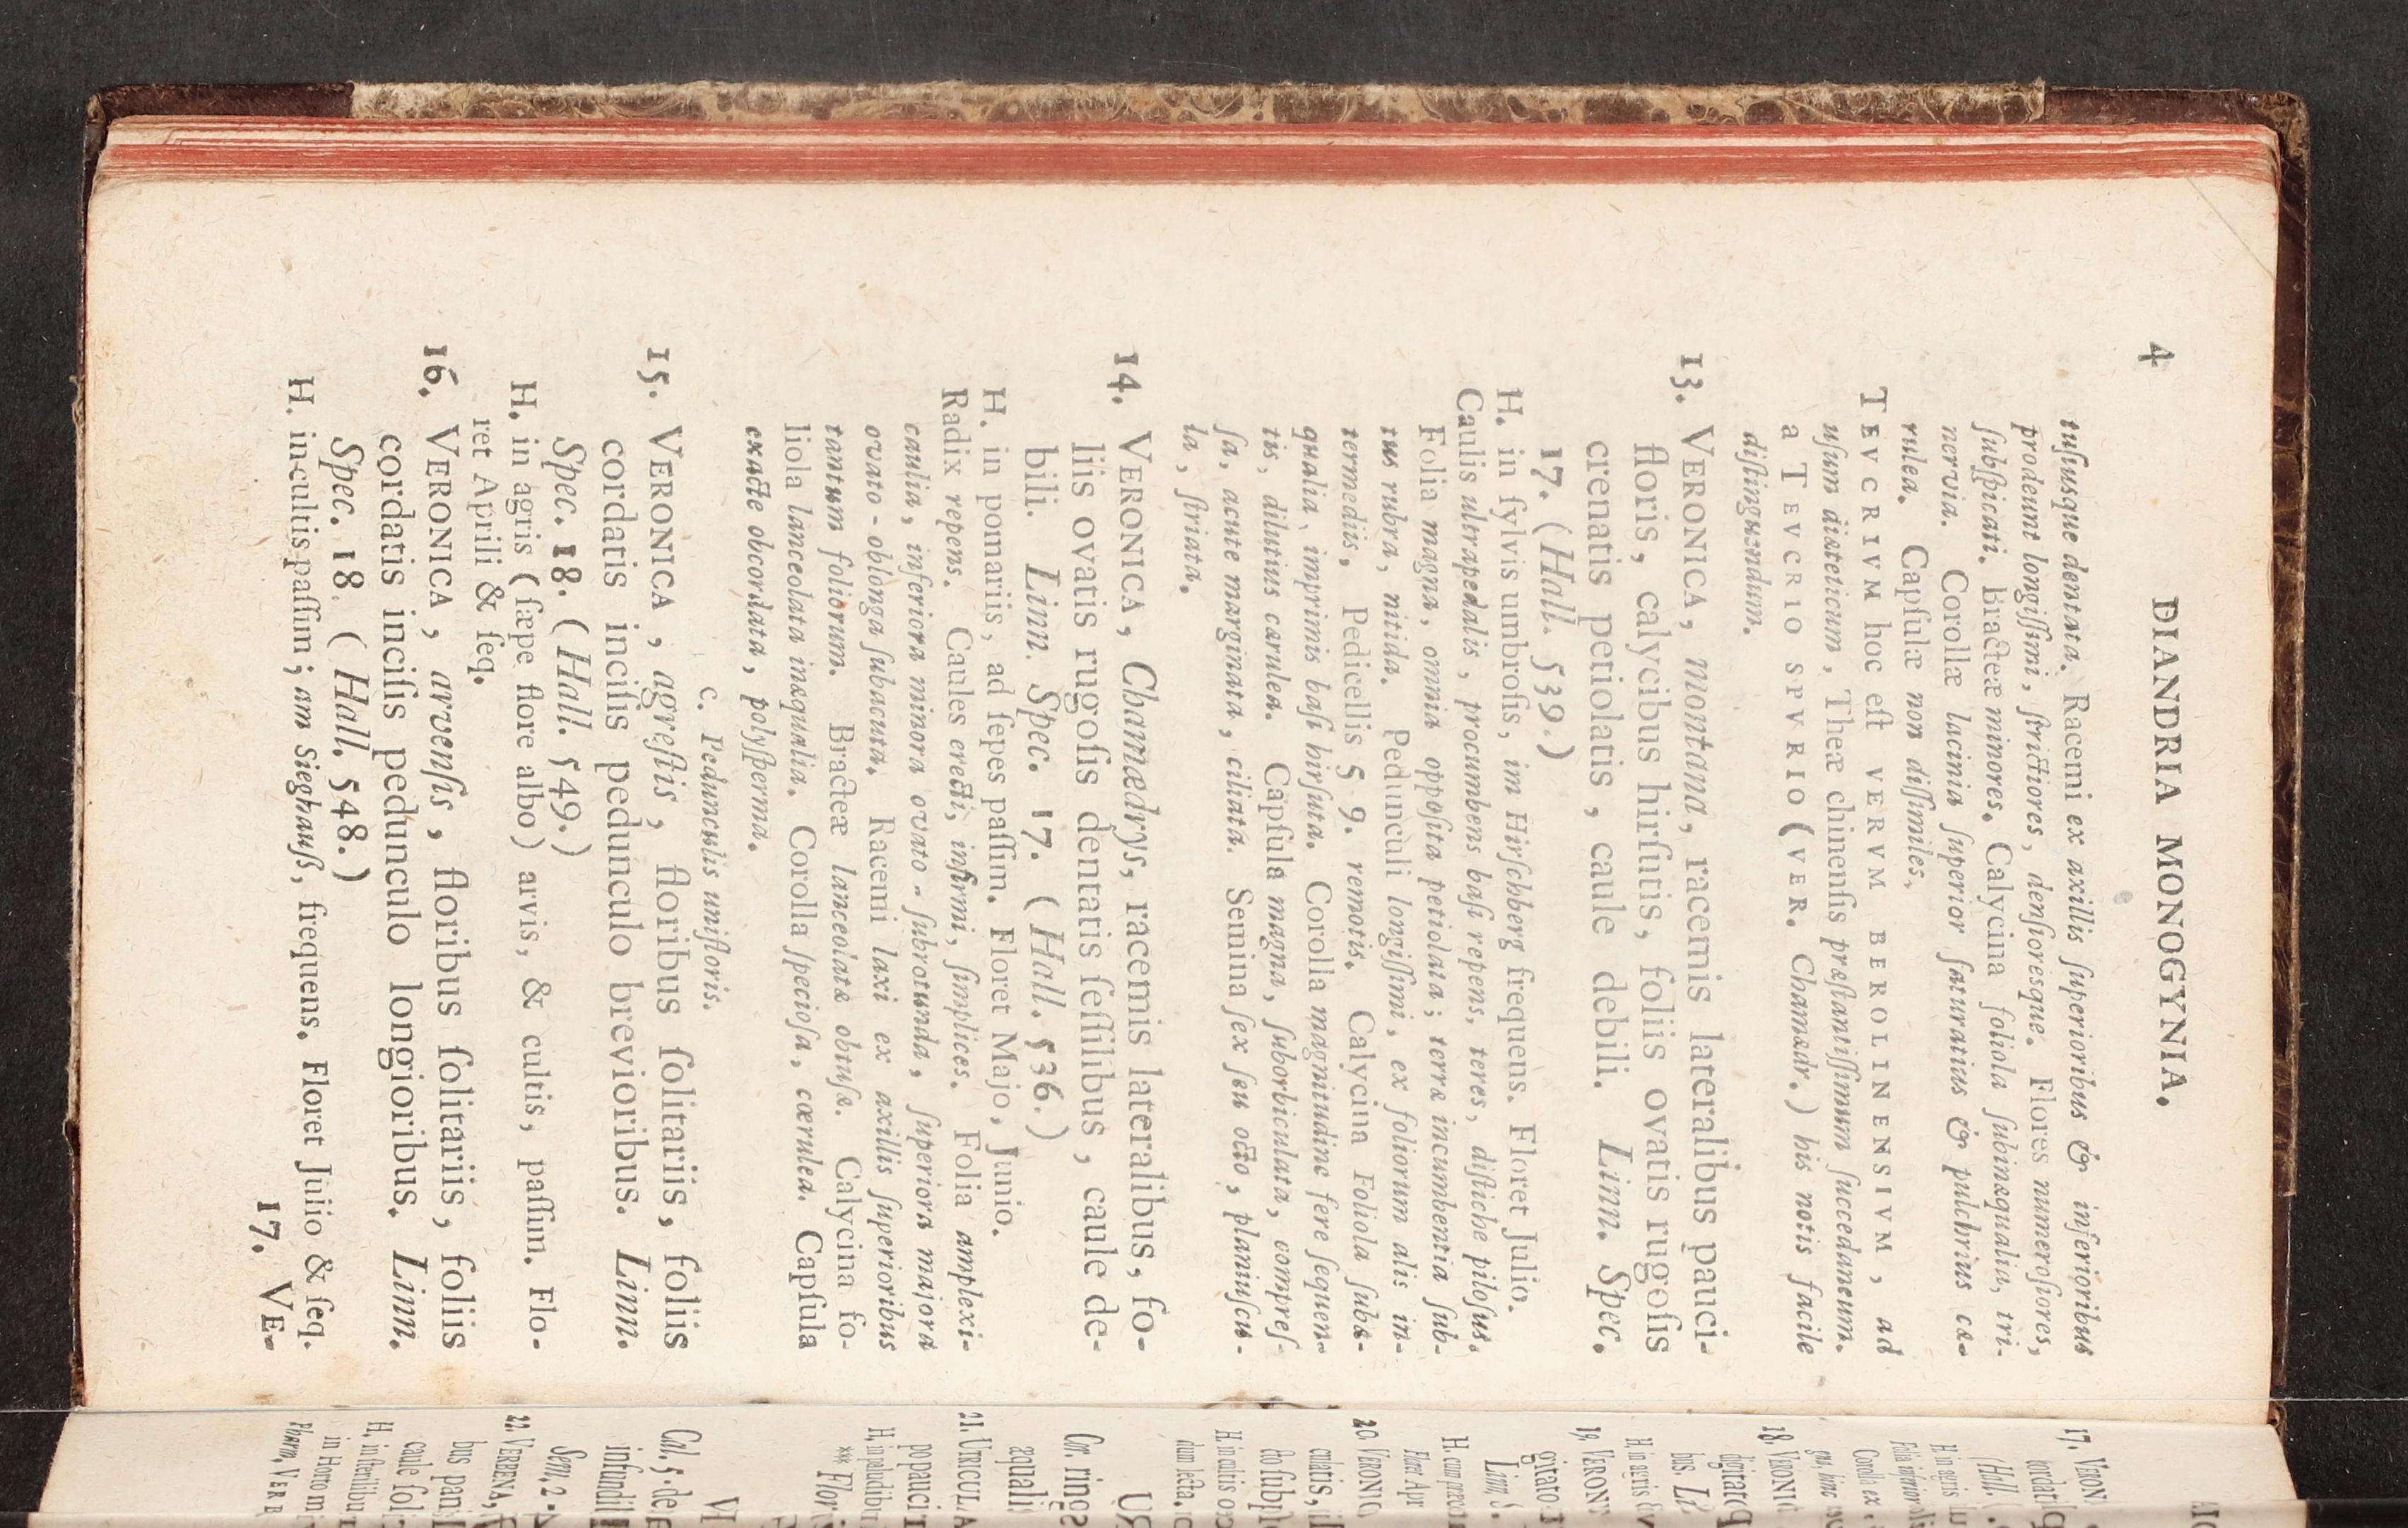 4 DIANDRIA MONOGYNIA.
tuſusque dentata. Racemi ex axillis ſuperioribus & inferioribus
prodeunt longiſſimi, ſtrictiores, denſioresque. Flores numeroſiores,
ſubſpicati. Bracteæ minores. Calycina foliola ſubinæqualia, tri-
nervia. Corollæ lacinia ſuperior ſaturatius & pulchrius cæ-
rulea. Capſulæ non diſſimiles.
TEVCRIVM hoc eſt VERVM BEROLINENSIVM, ad
uſum diæteticum, Theæ chinenſis præſtantiſſimum ſuccedaneum.
a TEVCRIO SPVRIO (VER. Chamædr.) his notis facile
diſtinguendum.
13. VERONICA, montana, racemis lateralibus pauci-
floris, calycibus hirſutis, foliis ovatis rugoſis
crenatis petiolatis, caule debili. Linn. Spec.
17. (Hall. 539.)
H. in ſylvis umbroſis, im Hirſchberg frequens. Floret Julio.
Caulis ultrapedalis, procumbens baſi repens, teres, diſtiche piloſus.
Folia magna, omnia oppoſita petiolata; terræ incumbentia ſub-
tus rubra, nitida. Pedunculi longiſſimi, ex foliorum alis in-
termediis, Pedicellis § 9. remotis. Calycina Foliola ſubæ-
qualia, imprimis baſi hirſuta. Corolla magnitudine fere ſequen-
tis, dilutius cærulea. Capſula magna, ſuborbiculata, compreſ-
ſa, acute marginata, ciliata. Semina ſex ſeu octo, planiuſcu-
la, ſtriata.
14. VERONICA, Chamædrys, racemis lateralibus, fo-
liis ovatis rugoſis dentatis ſeſſilibus, caule de-
bili. Linn. Spec. 17. (Hall. 536.)
H. in pomariis, ad ſepes paſſim. Floret Majo, Junio.
Radix repens. Caules erecti, infirmi, ſimplices. Folia amplexi-
caulia, inferiora minora ovato-ſubrotunda, ſuperiora majora
ovato-oblonga ſubacuta. Racemi laxi ex axillis ſuperioribus
tantum foliorum. Bracteæ lanceolatæ obtuſæ. Calycina fo-
liola lanceolata inæqualia. Corolla ſpecioſa, cœrulea. Capſula
exacte obcordata, polyſperma.
c. Pedunculis unifloris.
15. VERONICA, agreſtis, floribus ſolitariis, foliis
cordatis inciſis pedunculo brevioribus. Linn.
Spec. 18. (Hall. 549.)
H. in agris (ſæpe flore albo) arvis, & cultis, paſſim. Flo-
ret Aprili & ſeq.
16. VERONICA, arvenſis, floribus ſolitariis, foliis
cordatis inciſis pedunculo longioribus. Linn.
Spec. 18. (Hall. 548.)
H. in cultis paſſim; am Sieghauß, frequens. Floret Juiio & ſeq.
17. VE-
17. VERON
(Hall.
H. in agris
18. VERONIC
digitat
bus. Li
H. in agris
19. VERONI
gitato
Linn. S.
Floret Apr
20. VERONIC
culatis,
H. in cultis
dum lecta.
UR
Cor. ring
æquali
21. UTRICULA
po pauci
H. in paludibu
** Flor
VI
Cal. 5-de
infundi
Sem. 2-
22. VERBENA,
bus pani
caule ſol
H. in ſterilibu
in Horto m
Pharm. VERB